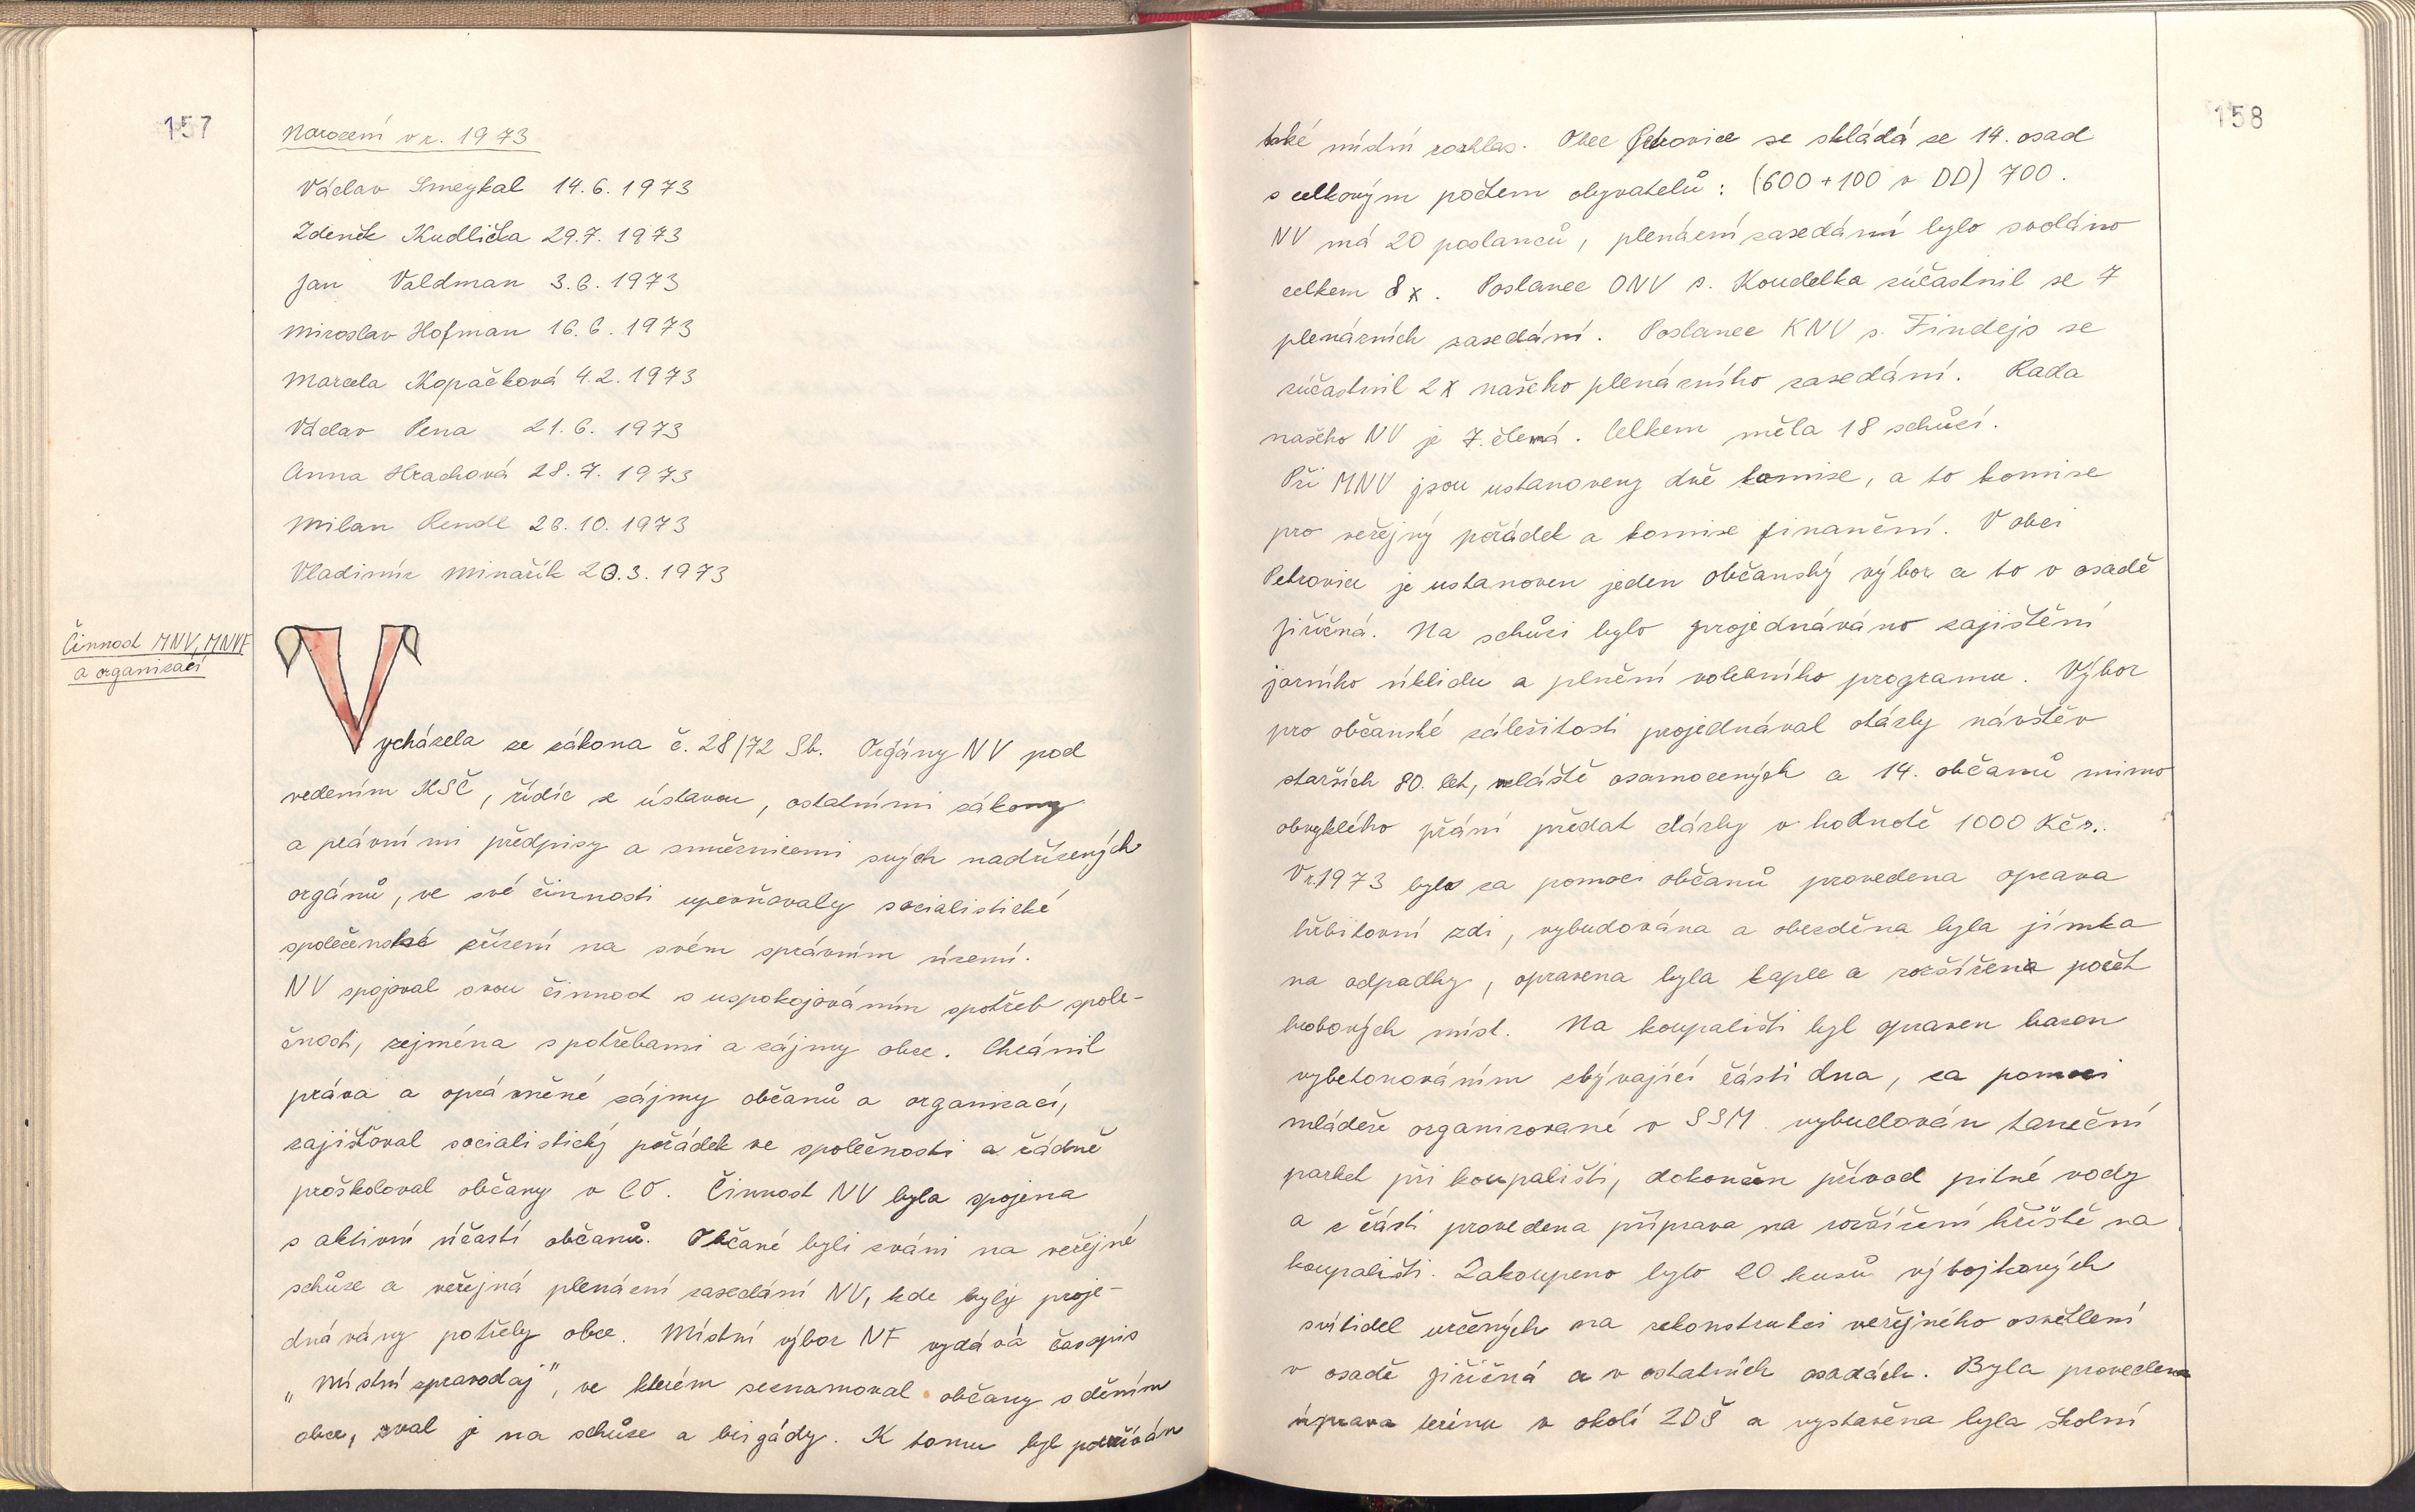 157
Narození v r. 1973
Václav Smeykal 14.6.1973
Zdeněk Kudlička 29.7.1973
Jan Valdman 3.6.1973
Miroslav Hofman 16.6.1973
Marcela Kopačková 4.2.1973
Václav Pena 21.6.1973
Anna Hrachová 28.7.1973
Milan Rendl 26.10.1973
Vladimír Minařík 20.3.1973
Činnost MNV, MNVF
a organizací
Vycházela ze zákona č. 28/72 Sb. Orgány NV pod
vedením KSČ, řídíc se ústavou, ostatními zákony
a právními předpisy a směrnicemi svých nadřízených
orgánů, ve své činnosti upevňovaly socialistické
společenské zřízení na svém správním území.
NV spojoval svou činnost s uspokojováním spotřeb spole-
čnosti, zejména s potřebami a zájmy obce. Chránil
práva a oprávněné zájmy občanů a organizací,
zajišťoval socialistický pořádek ve společnosti a řádně
proškoloval občany v CO. Činnost NV byla spojena
s aktivní účastí občanů. Občané byli zváni na veřejné
schůze a veřejná plenární zasedání NV, kde byly proje-
dnávány potřeby obce. Místní výbor NF vydává časopis
„Místní zpravodaj", ve kterém seznamoval občany s děním
obce, zval je na schůze a brigády. K tomu byl používán
158
také místní rozhlas. Obec Petrovice se skládá ze 14. osad
s celkovým počtem obyvatelů: (600+100 v DD) 700.
NV má 20 poslanců, plenární zasedání bylo svoláno
celkem 8x. Poslanec ONV s. Koudelka zúčastnil se 7
plenárních zasedání. Poslanec KNV s. Findejs se
zúčastnil 2x našeho plenárního zasedání. Rada
našeho NV je 7.členná. Celkem měla 18 schůzí.
Při MNV jsou ustanoveny dvě komise, a to komise
pro veřejný pořádek a komise finanční. V obci
Petrovice je ustanoven jeden občanský výbor a to v osadě
Jiřičná. Na schůzi bylo projednáváno zajištění
jarního úklidu a plnění volebního programu. Výbor
pro občanské záležitosti projednával otázky návštěv
starších 80. let, zvláště osamocených a 14. občanů mimo
obvyklého přání předat dárky v hodnotě 1000 Kčs.
V r. 1973 byla za pomoci občanů provedena oprava
hřbitovní zdi, vybudována a obezděna byla jímka
na odpadky, opravena byla kaple a rozšířena počet
hrobových míst. Na koupališti byl opraven bazen
vybetonováním zbývající části dna, za pomoci
mládeže organizované v SSM vybudován taneční
parket při koupališti, dokončen přívod pitné vody
a z části provedena příprava na rozšíření hřiště na
koupališti. Zakoupeno bylo 20 kusů výbojkových
svítidel určených na rekonstrukci veřejného osvětlení
v osadě Jiřičná a v ostatních osadách. Byla provedena
úprava terénu v okolí ZDŠ a vystavěna byla školní